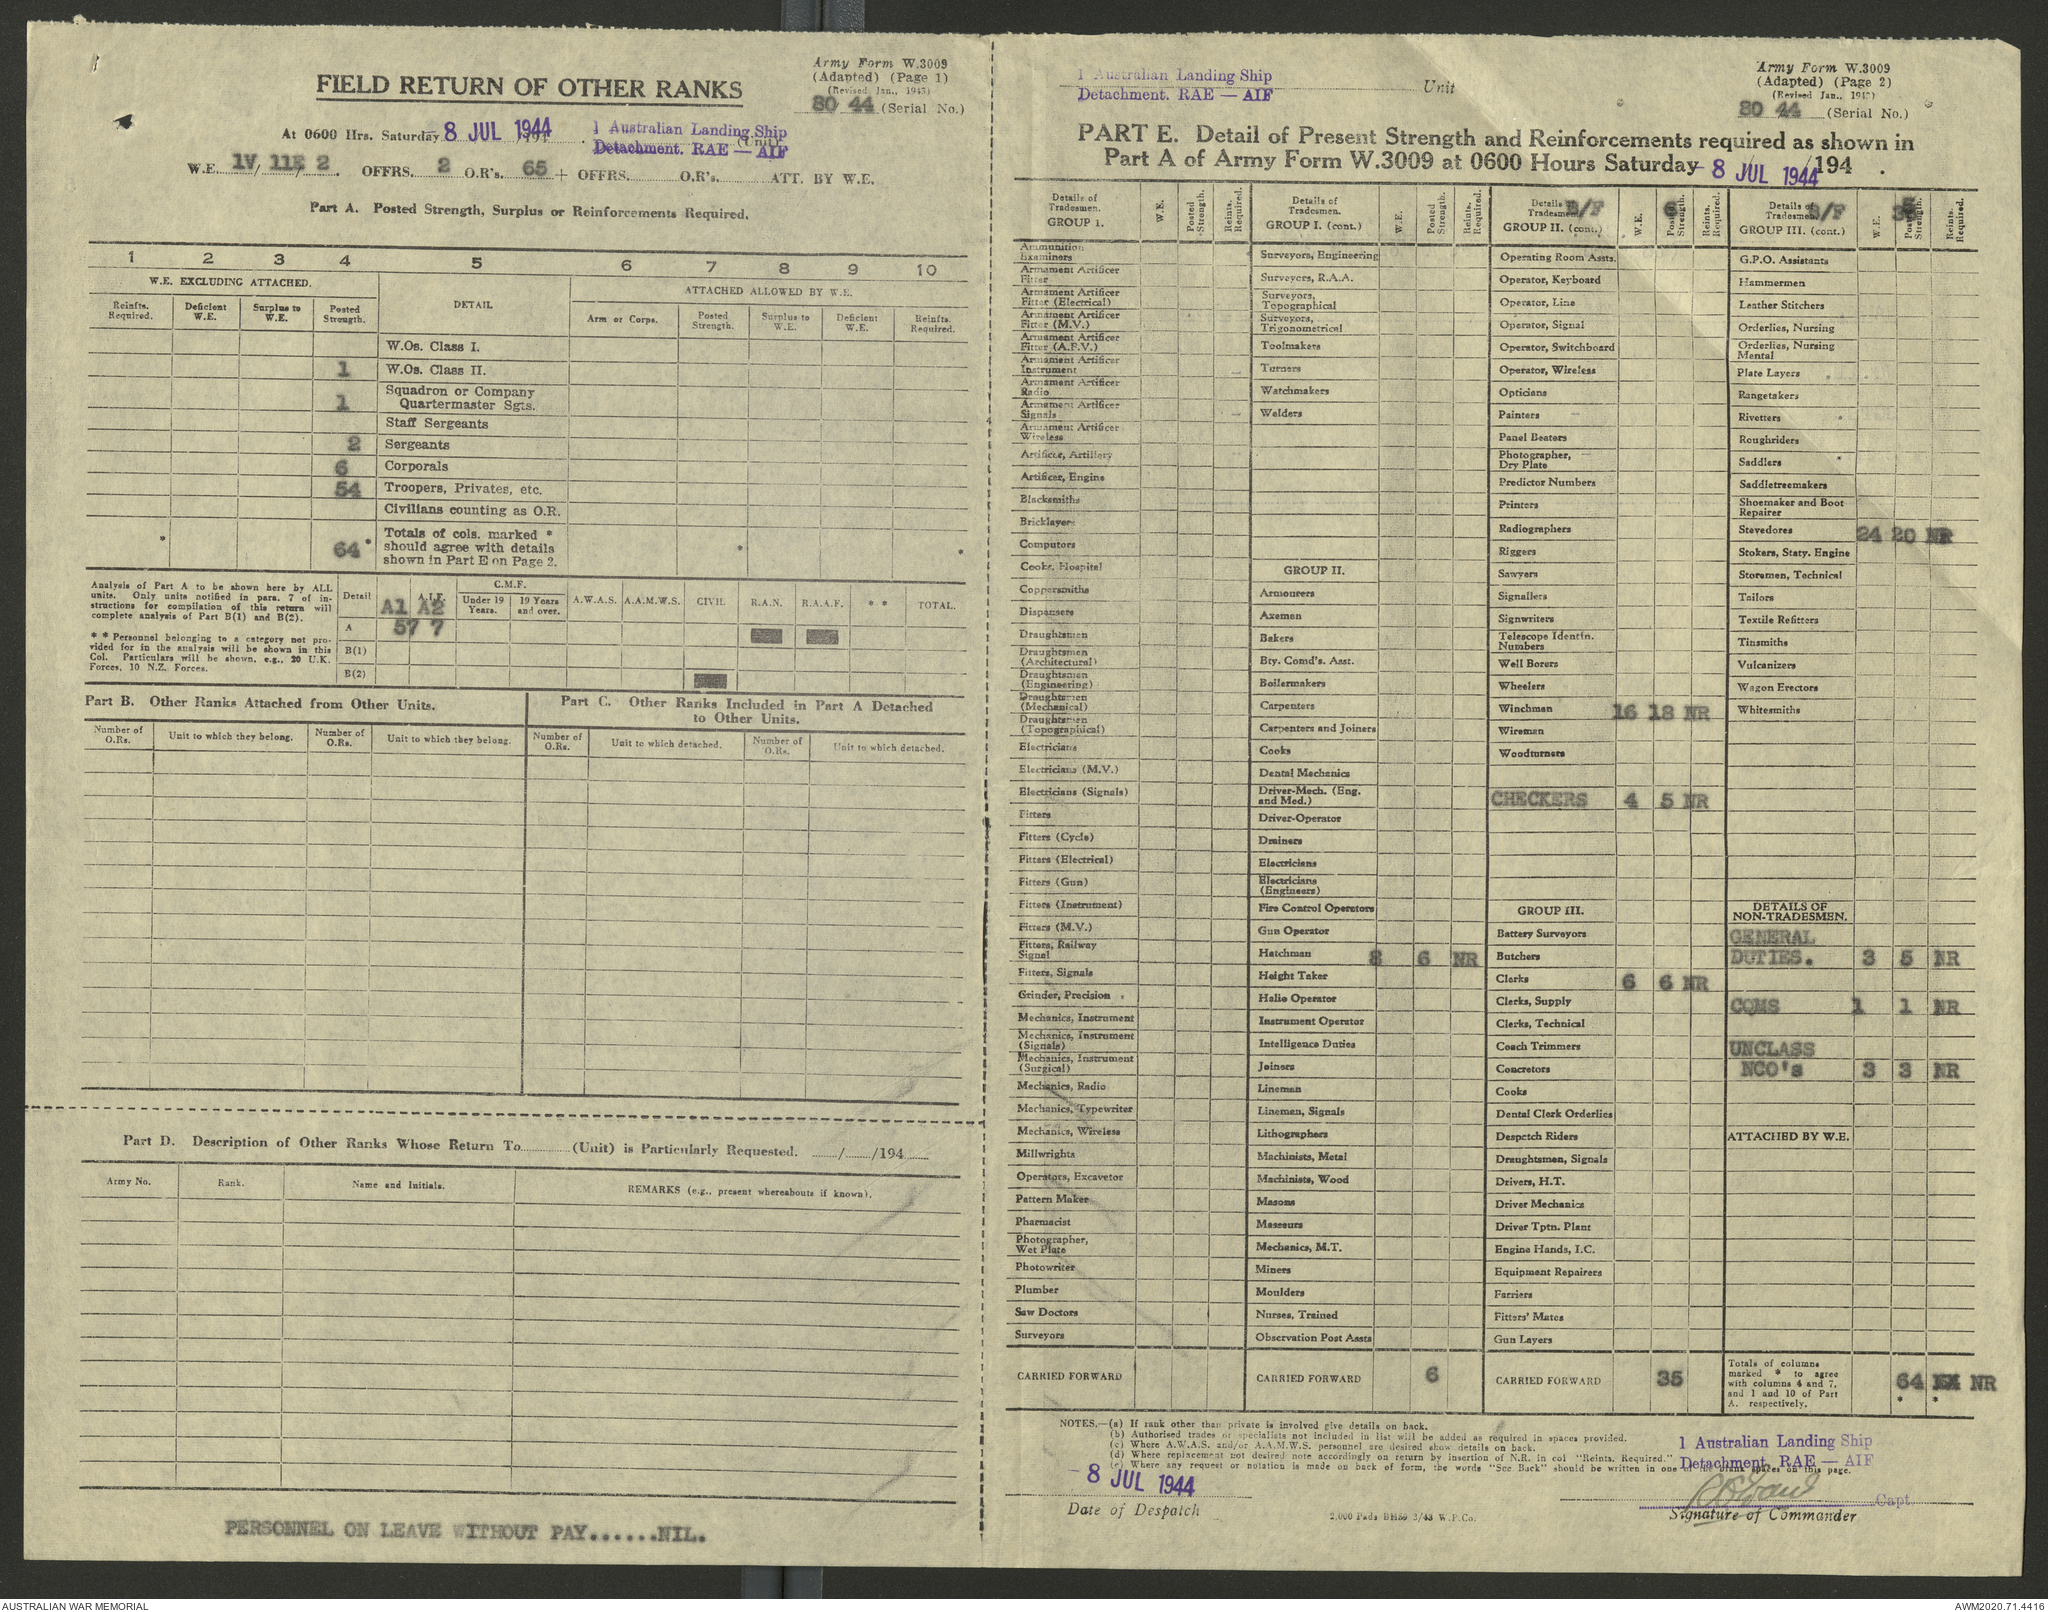 Army Form W.3009
(Adapted) (Page 1)
(Revised Jan., 1943)
80 44 (Serial No.)
FIELD RETURN OF OTHER RANKS
At 0600 Hrs. Saturday - 8 JUL 1944 1 Australian Landing Ship (Unit)
Detachment. RAE — AIF
W.E. 1V/ 11E/ 2. OFFRS. 2 O.R's. 65 + OFFRS. O.R's. ATT. BY W.E.
Part A. Posted Strength, Surplus or Reinforcements Required.
1 2 3 4 5 6 7 8 9 10
W.E. EXCLUDING ATTACHED. DETAIL ATTACHED ALLOWED BY W.E.
Reinfts. Required. Deficient W.E. Surplus to W.E. Posted Strength. Arm or Corps. Posted Strength. Surplus to W.E. Deficient W.E. Reinfts. Required.
W.Os. Class I.
1 W.Os. Class II.
Squadron or Company
1 Quartermaster Sgts.
Staff Sergeants
2 Sergeants
6 Corporals
54 Troopers, Privates, etc.
Civilians counting as O.R.
* 64 * Totals of cols. marked *
should agree with details * *
shown in Part E on Page 2.
Analysis of Part A to be shown here by ALL
units. Only units notified in para. 7 of in-
structions for compilation of this return will
complete analysis of Part B(1) and B(2).
* * Personnel belonging to a category not pro-
vided for in the analysis will be shown in this
Col. Particulars will be shown, e.g., 20 U.K.
Forces, 10 N.Z. Forces.
Detail A.I.F. C.M.F. A.W.A.S. A.A.M.W.S. CIVIL R.A.N. R.A.A.F. * * TOTAL.
A1 A2 Under 19 Years. 19 Years and over.
A 57 7
B(1)
B(2)
Part B. Other Ranks Attached from Other Units.
Number of O.Rs. Unit to which they belong. Number of O.Rs. Unit to which they belong.
Part C. Other Ranks Included in Part A Detached
to Other Units.
Number of O.Rs. Unit to which detached. Number of O.Rs. Unit to which detached.
Part D. Description of Other Ranks Whose Return To (Unit) is Particularly Requested. / /194
Army No. Rank. Name and Initials. REMARKS (e.g., present whereabouts if known).
PERSONNEL ON LEAVE WITHOUT PAY......NIL.
1 Australian Landing Ship Unit
Detachment. RAE — AIF
Army Form W.3009
(Adapted) (Page 2)
(Revised Jan., 1943)
80 44 (Serial No.)
PART E. Detail of Present Strength and Reinforcements required as shown in
Part A of Army Form W.3009 at 0600 Hours Saturday - 8 JUL 1944 /194 .
Details of Tradesmen. GROUP I. W.E. Posted Strength. Reints. Required.
Ammunition Examiners
Armament Artificer Fitter
Armament Artificer Fitter (Electrical)
Armament Artificer Fitter (M.V.)
Armament Artificer Fitter (A.F.V.)
Armament Artificer Instrument
Armament Artificer Radio
Armament Artificer Signals
Armament Artificer Wireless
Artificer, Artillery
Artificer, Engine
Blacksmiths
Bricklayers
Computors
Cooks, Hospital
Coppersmiths
Dispensers
Draughtsmen
Draughtsmen (Architectural)
Draughtsmen (Engineering)
Draughtsmen (Mechanical)
Draughtsmen (Topographical)
Electricians
Electricians (M.V.)
Electricians (Signals)
Fitters
Fitters (Cycle)
Fitters (Electrical)
Fitters (Gun)
Fitters (Instrument)
Fitters (M.V.)
Fitters, Railway Signal
Fitters, Signals
Grinder, Precision
Mechanics, Instrument
Mechanics, Instrument (Signals)
Mechanics, Instrument (Surgical)
Mechanics, Radio
Mechanics, Typewriter
Mechanics, Wireless
Millwrights
Operators, Excavator
Pattern Maker
Pharmacist
Photographer, Wet Plate
Photowriter
Plumber
Saw Doctors
Surveyors
CARRIED FORWARD
Details of Tradesmen. GROUP I. (cont.) W.E. Posted Strength. Reints. Required.
Surveyors, Engineering
Surveyors, R.A.A.
Surveyors, Topographical
Surveyors, Trigonometrical
Toolmakers
Turners
Watchmakers
Welders
GROUP II.
Armourers
Axemen
Bakers
Bty. Comd's. Asst.
Boilermakers
Carpenters
Carpenters and Joiners
Cooks
Dental Mechanics
Driver-Mech. (Eng. and Med.)
Driver-Operator
Drainers
Electricians
Electricians (Engineers)
Fire Control Operators
Gun Operator
Hatchman 8 6 NR
Height Taker
Helio Operator
Instrument Operator
Intelligence Duties
Joiners
Lineman
Lineman, Signals
Lithographers
Machinists, Metal
Machinists, Wood
Masons
Masseurs
Mechanics, M.T.
Miners
Moulders
Nurses, Trained
Observation Post Assts
CARRIED FORWARD 6
Details of Tradesmen. B/F GROUP II. (cont.) W.E. 6 Posted Strength. Reints. Required.
Operating Room Assts.
Operator, Keyboard
Operator, Line
Operator, Signal
Operator, Switchboard
Operator, Wireless
Opticians
Painters
Panel Beaters
Photographer, Dry Plate
Predictor Numbers
Printers
Radiographers
Riggers
Sawyers
Signallers
Signwriters
Telescope Identfn. Numbers
Well Borers
Wheelers
Winchman 16 18 NR
Wireman
Woodturners
CHECKERS 4 5 NR
GROUP III.
Battery Surveyors
Butchers
Clerks 6 6 NR
Clerks, Supply
Clerks, Technical
Coach Trimmers
Concretors
Cooks
Dental Clerk Orderlies
Despatch Riders
Draughtsmen, Signals
Drivers, H.T.
Driver Mechanics
Driver Tptn. Plant
Engine Hands, I.C.
Equipment Repairers
Farriers
Fitters' Mates
Gun Layers
CARRIED FORWARD 35
Details of Tradesmen. B/F GROUP III. (cont.) W.E. 35 Posted Strength. Reints. Required.
G.P.O. Assistants
Hammermen
Leather Stitchers
Orderlies, Nursing
Orderlies, Nursing Mental
Plate Layers
Rangetakers
Rivetters
Roughriders
Saddlers
Saddletreemakers
Shoemaker and Boot Repairer
Stevedores 24 20 NR
Stokers, Staty. Engine
Storemen, Technical
Tailors
Textile Refitters
Tinsmiths
Vulcanizers
Wagon Erectors
Whitesmiths
DETAILS OF
NON-TRADESMEN.
GENERAL
DUTIES. 3 5 NR
CQMS 1 1 NR
UNCLASS
NCO's 3 3 NR
ATTACHED BY W.E.
Totals of columns
marked * to agree
with columns 4 and 7, 64 NR
and 1 and 10 of Part
A. respectively. * *
NOTES.—(a) If rank other than private is involved give details on back.
(b) Authorised trades or specialists not included in list will be added as required in spaces provided.
(c) Where A.W.A.S. and/or A.A.M.W.S. personnel are desired show details on back.
(d) Where replacement not desired note accordingly on return by insertion of N.R. in col "Reints. Required."
(e) Where any request or notation is made on back of form, the words "See Back" should be written in one of the blank spaces on this page.
1 Australian Landing Ship
Detachment. RAE — AIF
- 8 JUL 1944
Date of Despatch
2,000 Pads BH59 3/43 W.P.Co.
Capt
Signature of Commander
AUSTRALIAN WAR MEMORIAL
AWM2020.71.4416